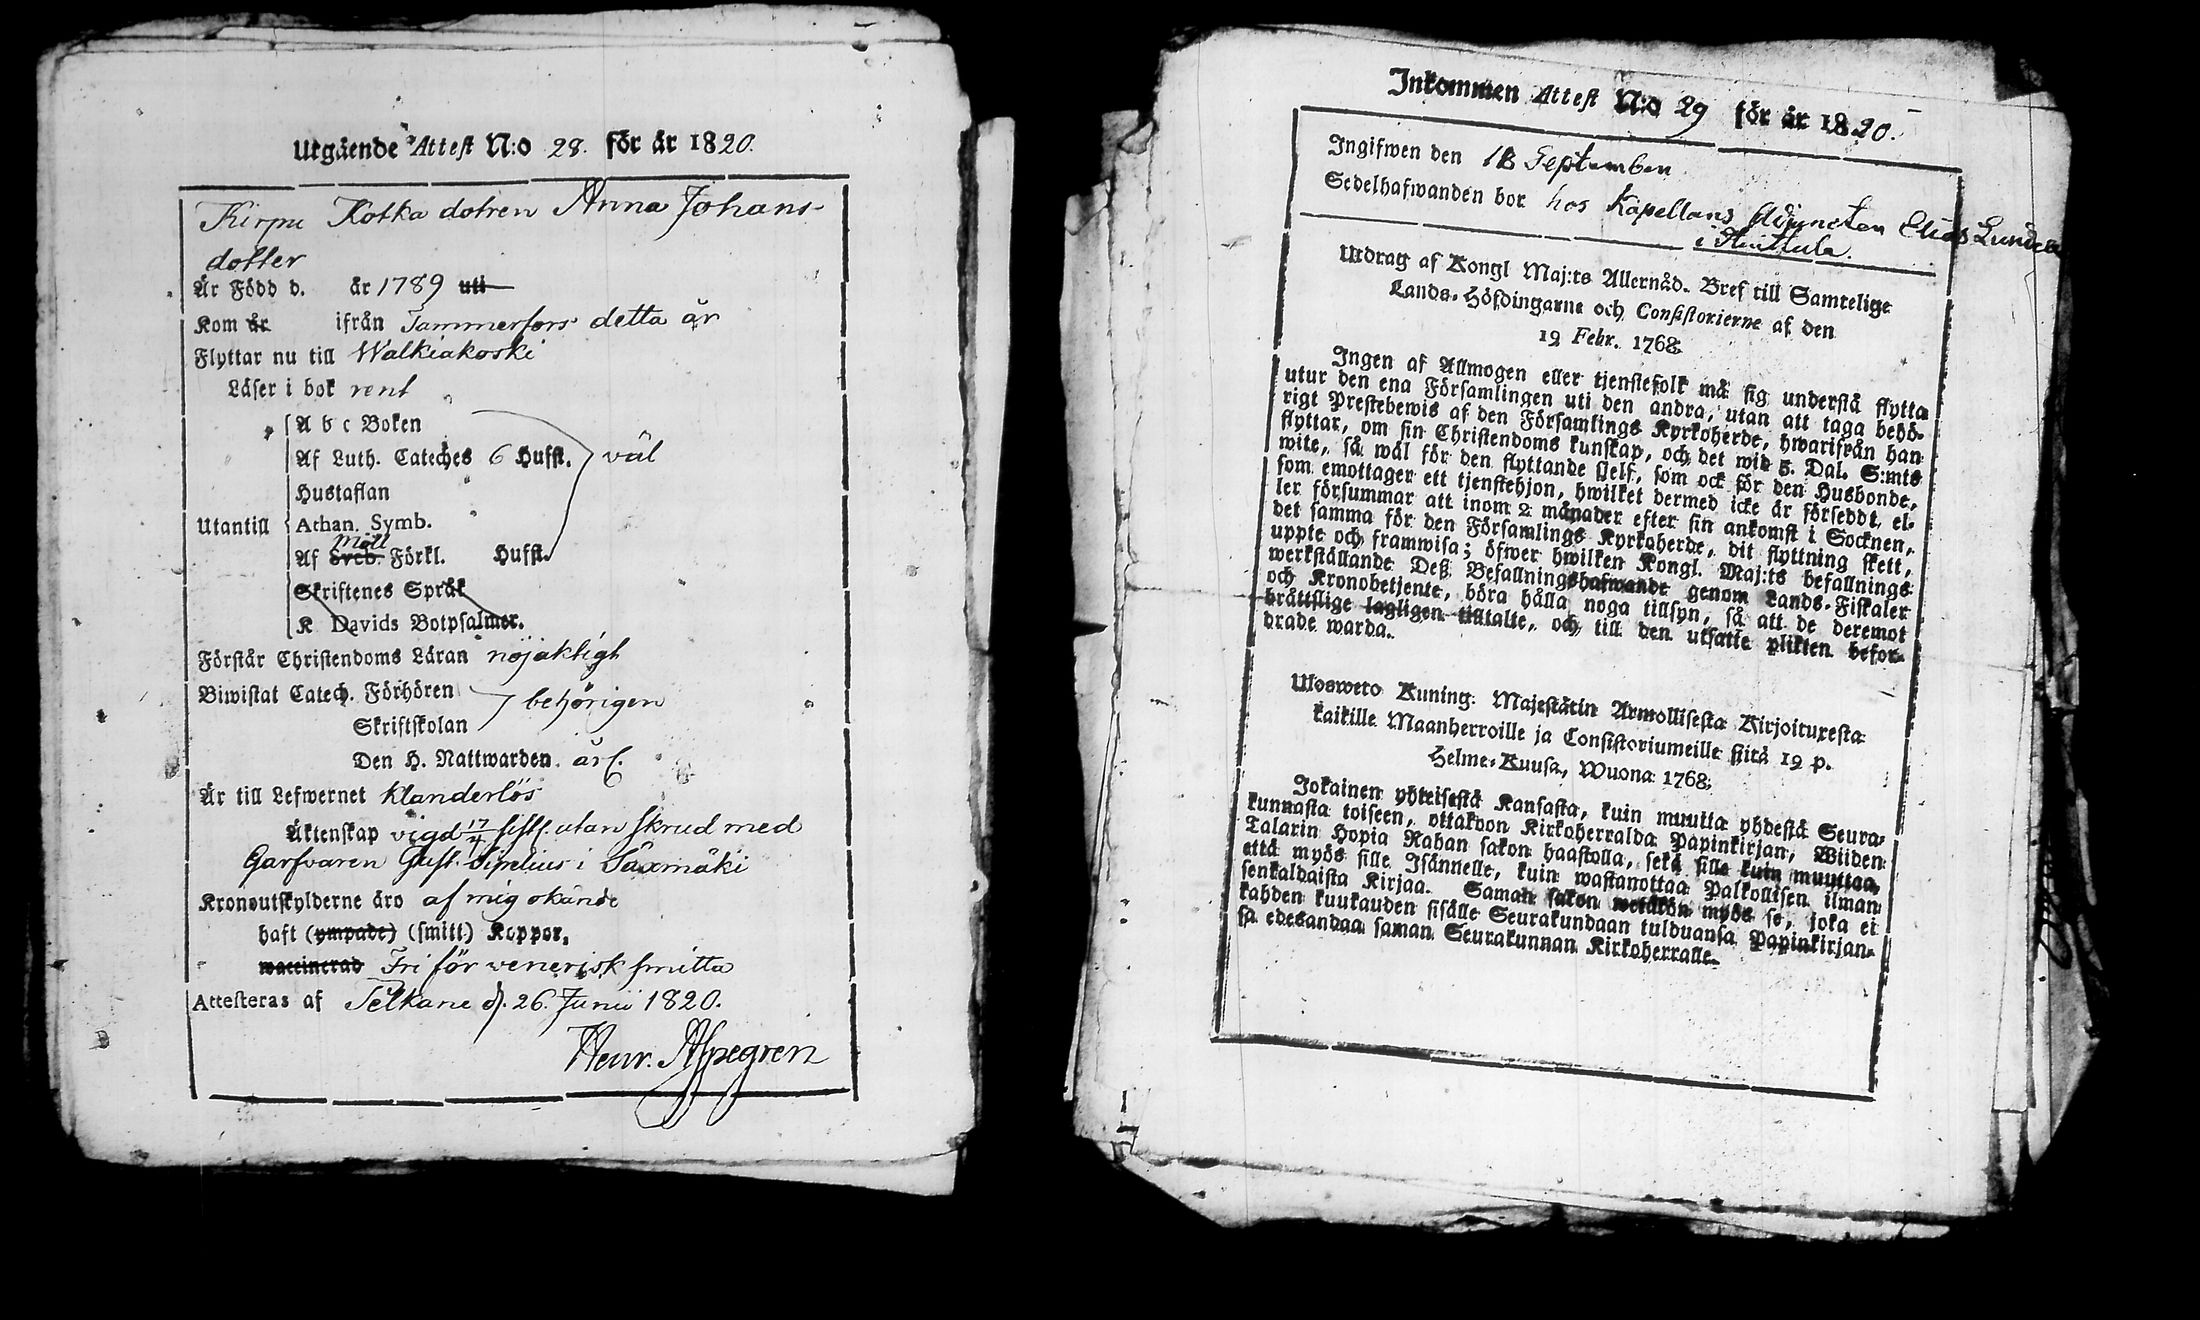 Utgående Attest N:o 28. för år 1820.
Kirpu Kotka dotren Anna Johans-
dotter
Är Född d. år 1789 uti
Kom år ifrån Tammerfors detta år
Flyttar nu till Walkiakoski
Läser i bok rent
A b c Boken
Af Luth. Cateches 6 Hufst. väl
Hustaflan
Utantill Athan. Symb.
Möll
Af Sveb. Förkl. Hufst.
Skriftenes Språk
K Davids Botpsalmer.
Förstår Christendoms Läran nöjaktigt
Biwistat Catech. Förhören behörigen
Skriftskolan
Den H. Nattwarden
Är till Lefwernet klanderlös
Äktenskap vigd 17/4 utan skrud med
Garfvaren Gust. Sipelius i Säxmäki
Kronoutskylderne äro af mig okände
haft (ympade) (smitt) Koppor,
waccinerad Fri för venerisk smitta
Attesteras af Pelkäne d. 26. Junii 1820.
Henr. Aspegren
Inkommen Attest N:o 29 för år 1820.
Ingifwen den 18 September
Sedelhafwanden bor hos Kapellans Adjuncten Elias
i
Utdrag af Kongl Maj:ts Allernåd. Bref till Samtelige
Lands-Höfdingarne och Consistorierne af den
19 Febr. 1768.
Ingen af Allmogen eller tjenstefolk må sig understå flytta
utur den ena Församlingen uti den andra, utan att taga behö-
rigt Prestebewis af den Församlings Kyrkoherde, hwarifrån han
flyttar, om sin Christendoms kunskap, och det wid 5. Dal. S:mts
wite, så wäl för den flyttande sjelf, som ock för den Husbonde,
som emottager ett tjenstehjon, hwilket dermed icke är försedt, el-
ler försummar att inom 2 månader efter sin ankomst i Socknen,
det samma för den Församlings Kyrkoherde, dit flyttning skett,
uppte och framwisa; öfwer hwilken Kongl. Maj:ts befallnings
werkställande Deß Befallningshafwande genom Lands-Fiskaler
och Kronobetjente, böra hålla noga tillsyn, så att de deremot
bråttslige lagligen tilltalte, och till den utsatte plikten befor-
drade warda.
Ulosweto Kuning. Majestätin Armollisesta Kirjoituxesta
kaikille Maanherroille ja Consistoriumeille siitä 19 p.
Helme-Kuusa, Wuona 1768.
Jokainen yhteisestä Kansasta, kuin muutta yhdestä Seura-
kunnasta toiseen, ottakoon Kirkoherralda Papinkirjan, Wiiden
Talarin Hopia Rahan sakon haastolla, sekä sille kuin muuttaa,
että myös sille Isännelle, kuin wastanottaa Palkollisen ilman
senkaldaista Kirjaa. Saman sakon wetäkön myös se, joka ei
kahden kuukauden sisälle Seurakundaan tulduansa Papinkirjan-
sa edesandaa saman Seurakunnan Kirkoherralle.